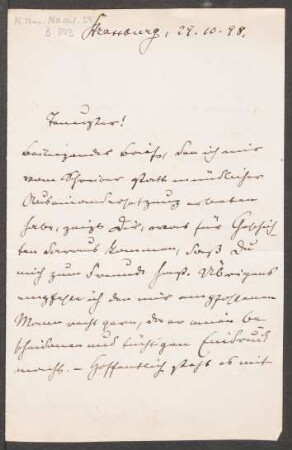 Strassburg, 29.10.98.
Teuerster!
Beiliegender Brief, den ich mir
vom Schreiber statt mündlicher
Auseinandersetzung erbeten
habe, zeigt Dir, was für Geschich-
ten daraus kommen, daß Du
mich zum Freunde hast. Übrigens
empfehle ich den mir empfohlenen
Mann recht gern, da er einen be-
scheidenen und tüchtigen Eindruck
macht. – Hoffentlich steht es mit